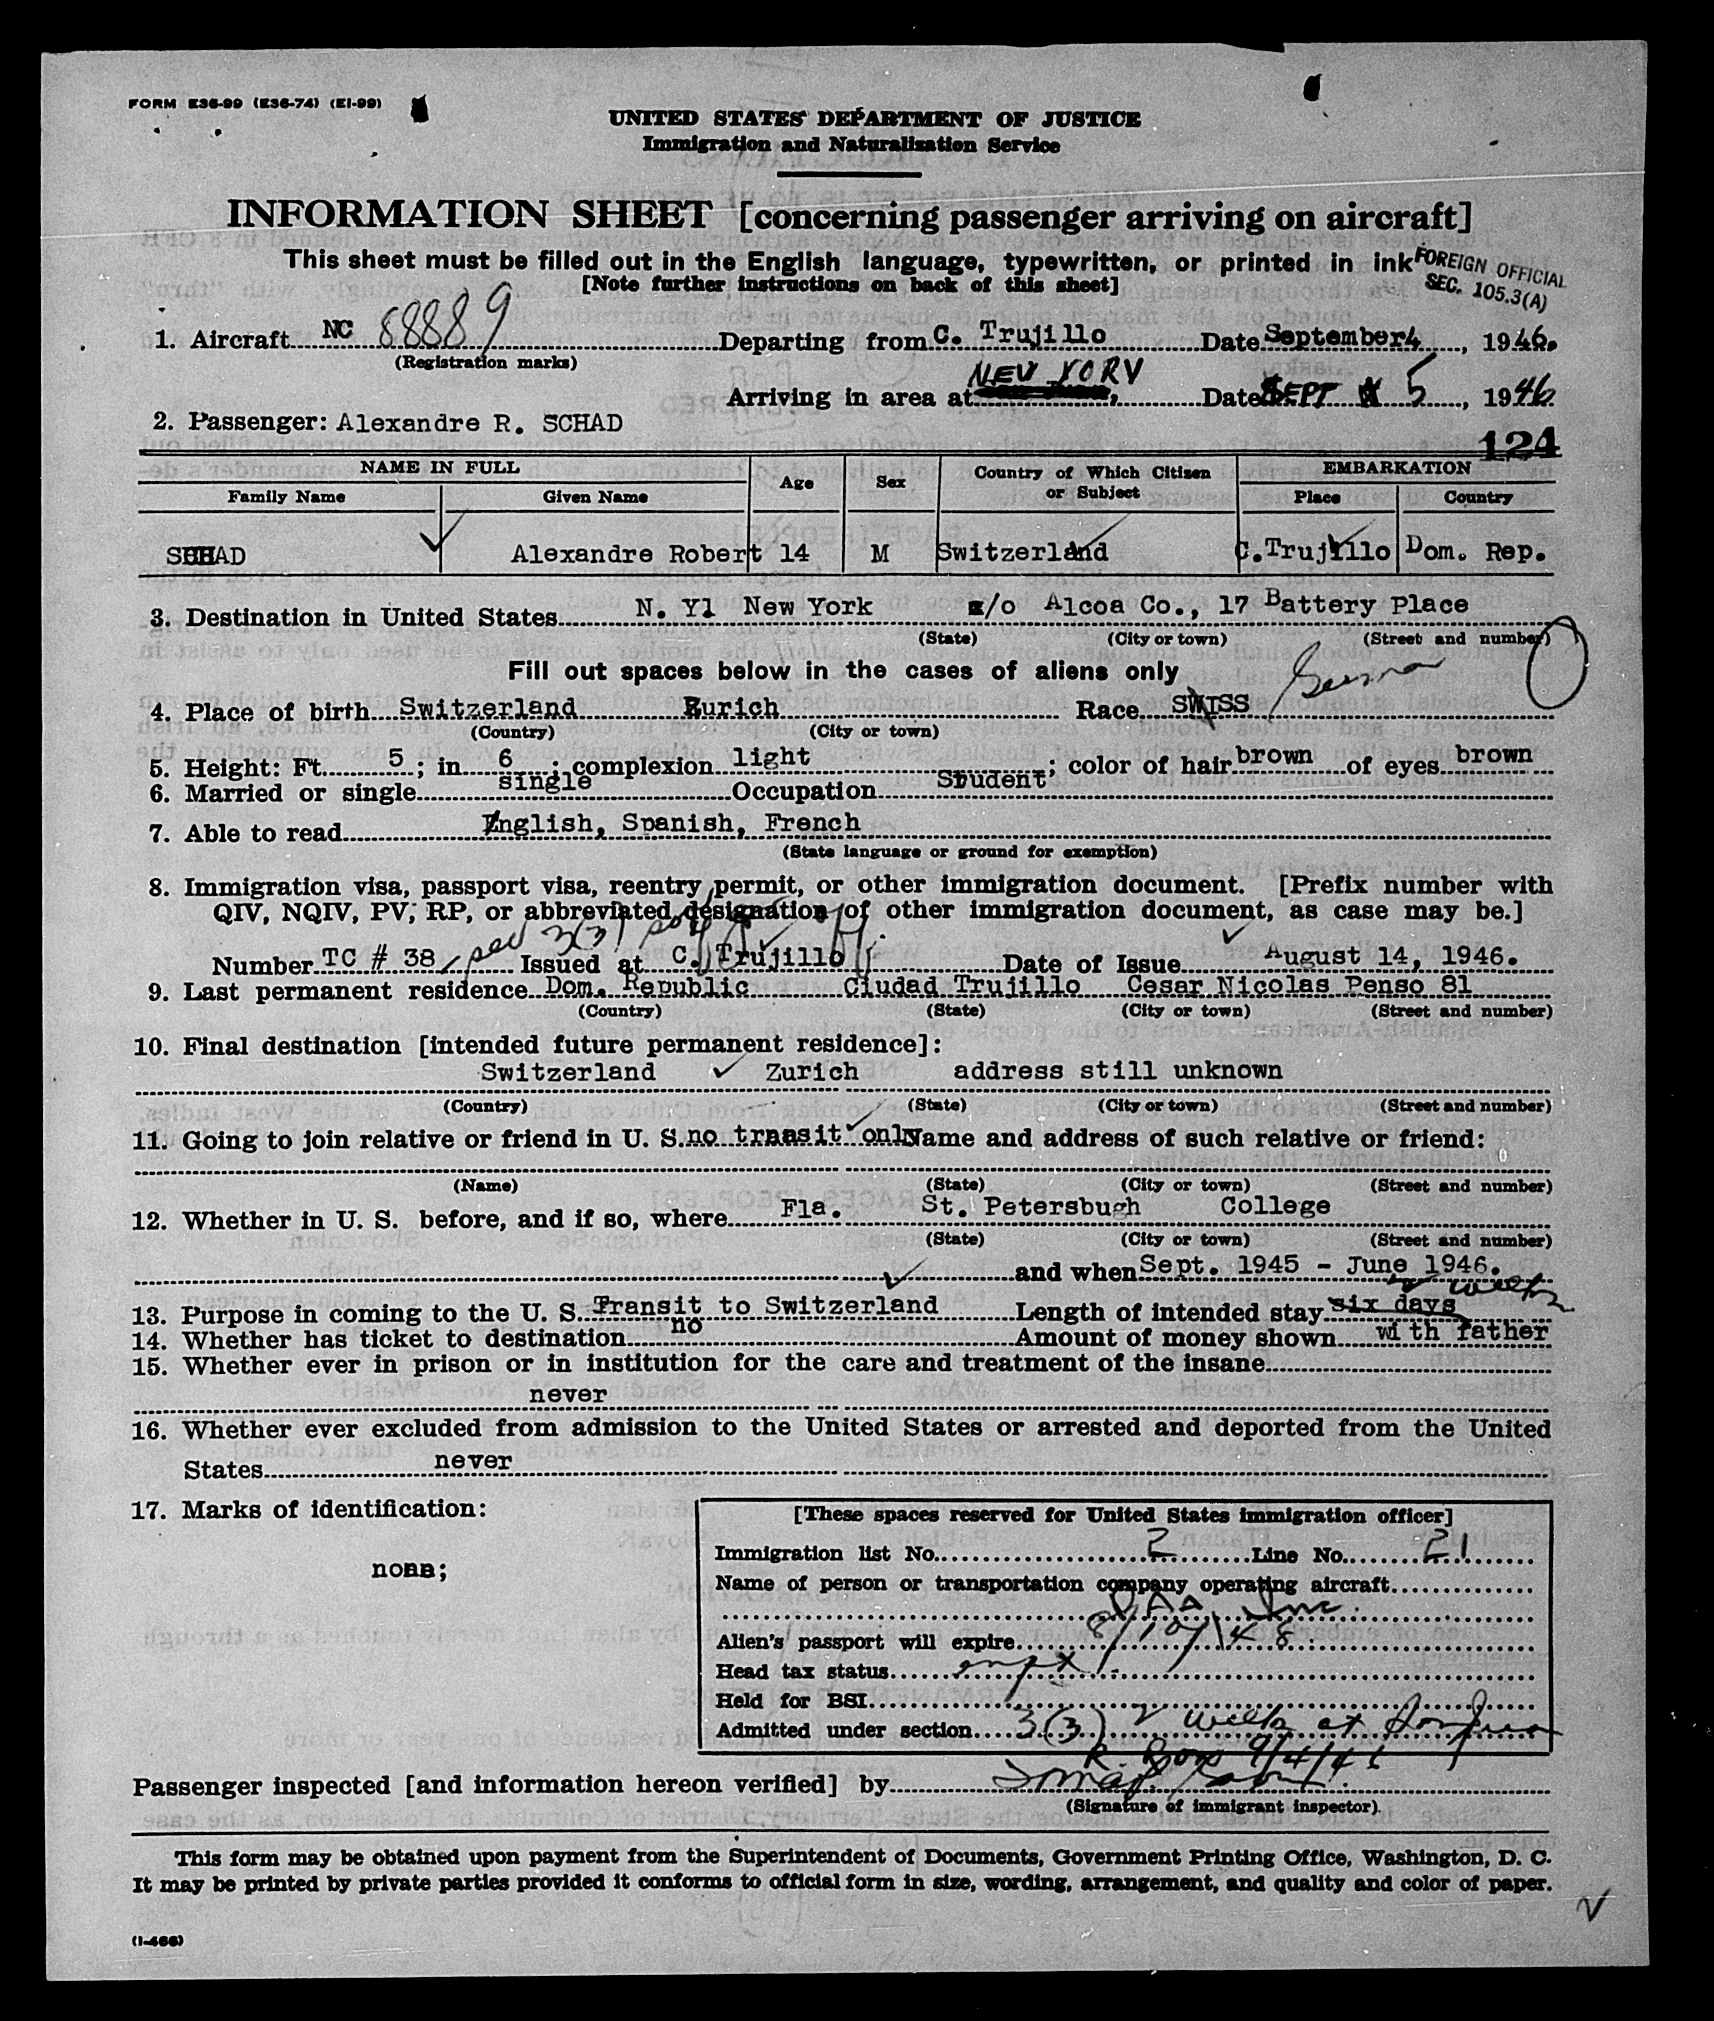 FORM E36-99 (E36-74) (EI-99)
UNITED STATES DEPARTMENT OF JUSTICE
Immigration and Naturalization Service
INFORMATION SHEET [concerning passenger arriving on aircraft]
This sheet must be filled out in the English language, typewritten, or printed in ink
[Note further instructions on back of this sheet]
FOREIGN OFFICIAL
SEC. 105.3(A)
1. Aircraft NC 88889 Departing from C. Trujillo Date September 4, 1946.
(Registration marks)
Arriving in area at NEW YORK, Date SEPT 5, 1946
2. Passenger: Alexandre R. SCHAD
124
NAME IN FULL Age Sex Country of Which Citizen or Subject EMBARKATION
Family Name Given Name Place Country
SCHAD Alexandre Robert 14 M Switzerland C.Trujillo Dom. Rep.
3. Destination in United States N. Yl New York c/o Alcoa Co., 17 Battery Place
(State) (City or town) (Street and number)
Fill out spaces below in the cases of aliens only
4. Place of birth Switzerland Zurich Race SWISS
(Country) (City or town)
5. Height: Ft. 5; in. 6; complexion light; color of hair brown of eyes brown
6. Married or single single Occupation Student
7. Able to read English, Spanish, French
(State language or ground for exemption)
8. Immigration visa, passport visa, reentry permit, or other immigration document. [Prefix number with
QIV, NQIV, PV, RP, or abbreviated designation of other immigration document, as case may be.]
Number TC # 38 sec 3(3) Issued at C. Trujillo Date of Issue August 14, 1946.
9. Last permanent residence Dom. Republic Ciudad Trujillo Cesar Nicolas Penso 81
(Country) (State) (City or town) (Street and number)
10. Final destination [intended future permanent residence]:
Switzerland Zurich address still unknown
(Country) (State) (City or town) (Street and number)
11. Going to join relative or friend in U. S. no transit only Name and address of such relative or friend:
(Name) (State) (City or town) (Street and number)
12. Whether in U. S. before, and if so, where Fla. St. Petersbugh College
(State) (City or town) (Street and number)
and when Sept. 1945 - June 1946.
2 weeks
13. Purpose in coming to the U. S. Transit to Switzerland Length of intended stay six days
14. Whether has ticket to destination no Amount of money shown with father
15. Whether ever in prison or in institution for the care and treatment of the insane
never
16. Whether ever excluded from admission to the United States or arrested and deported from the United
States never
17. Marks of identification:
none;
[These spaces reserved for United States immigration officer]
Immigration list No. 2 Line No. 21
Name of person or transportation company operating aircraft
PAA Inc.
Alien's passport will expire 8/10/48
Head tax status
Held for BSI
Admitted under section 3(3) 2 weeks at
9/4/46
Passenger inspected [and information hereon verified] by
(Signature of immigrant inspector).
This form may be obtained upon payment from the Superintendent of Documents, Government Printing Office, Washington, D. C.
It may be printed by private parties provided it conforms to official form in size, wording, arrangement, and quality and color of paper.
(I-466)